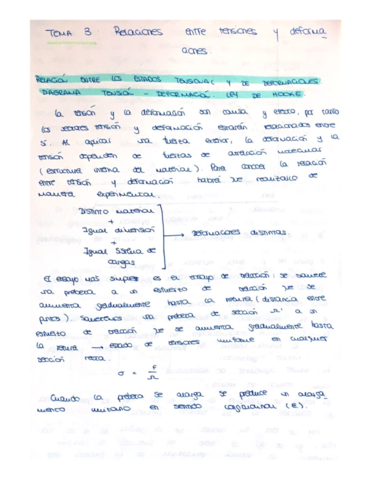 TEMA 3. Relaciones entre tensiones y deforma
ciones.
RELACIÓN ENTRE LOS ESTADOS TENSIONAL Y DE DEFORMACIONES
DIAGRAMA TENSIÓN - DEFORMACIÓN. LEY DE HOOKE.
La tensión y la deformación son causa y efecto, por tanto
los vectores tensión y deformación estarán relacionados entre
sí. Al aplicar una fuerza exterior, la deformación y la
tensión dependen de fuerzas de atracción moleculares
(estructura interna del material). Para conocer la relación
entre tensión y deformación habrá que realizarlo de
manera experimental.
Distinto material
+
Igual dimensión
→ Deformaciones distintas.
+
Igual sistema de
cargas
El ensayo más simple es el ensayo de tracción: se somete
una probeta a un esfuerzo de tracción que se
aumenta gradualmente hasta la rotura (distancia entre
puntos). Sometemos una probeta de sección Ω a un
esfuerzo de tracción que se aumenta gradualmente hasta
la rotura → estado de tensiones uniforme en cualquier
sección recta.
σ = F/Ω
Cuando la probeta se alarga se produce un alarga
miento unitario en sentido longitudinal (ε).